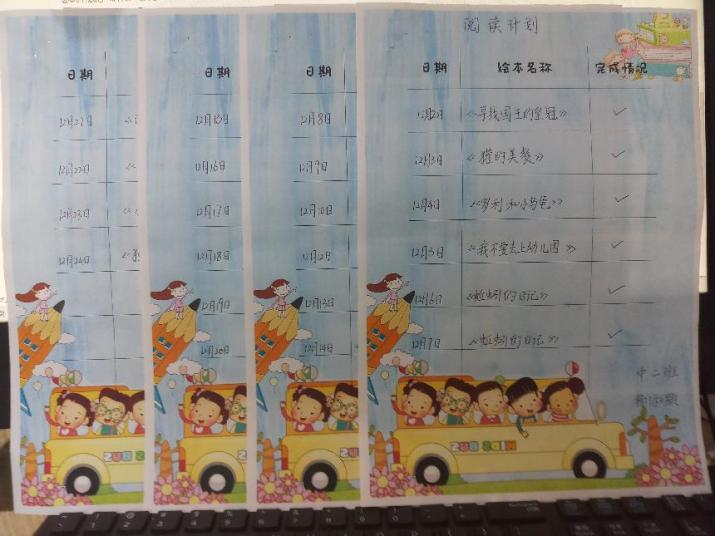 阅读计划
日期 绘本名称 完成情况
12月2日 《寻找国王的皇冠》 ✓
12月3日 《獾的美餐》 ✓
12月4日 《罗利和小乌龟》 ✓
12月5日 《我不要去上幼儿园》 ✓
12月6日 《蚯蚓的日记》 ✓
12月7日 《蚯蚓的日记》 ✓
中二班
KIDS BUS
日期
12月8日
12月9日
12月10日
12月12日
12月13日
12月14日
日期
12月16日
12月17日
12月18日
12月19日
12月20日
日期
12月22日
12月23日
12月24日